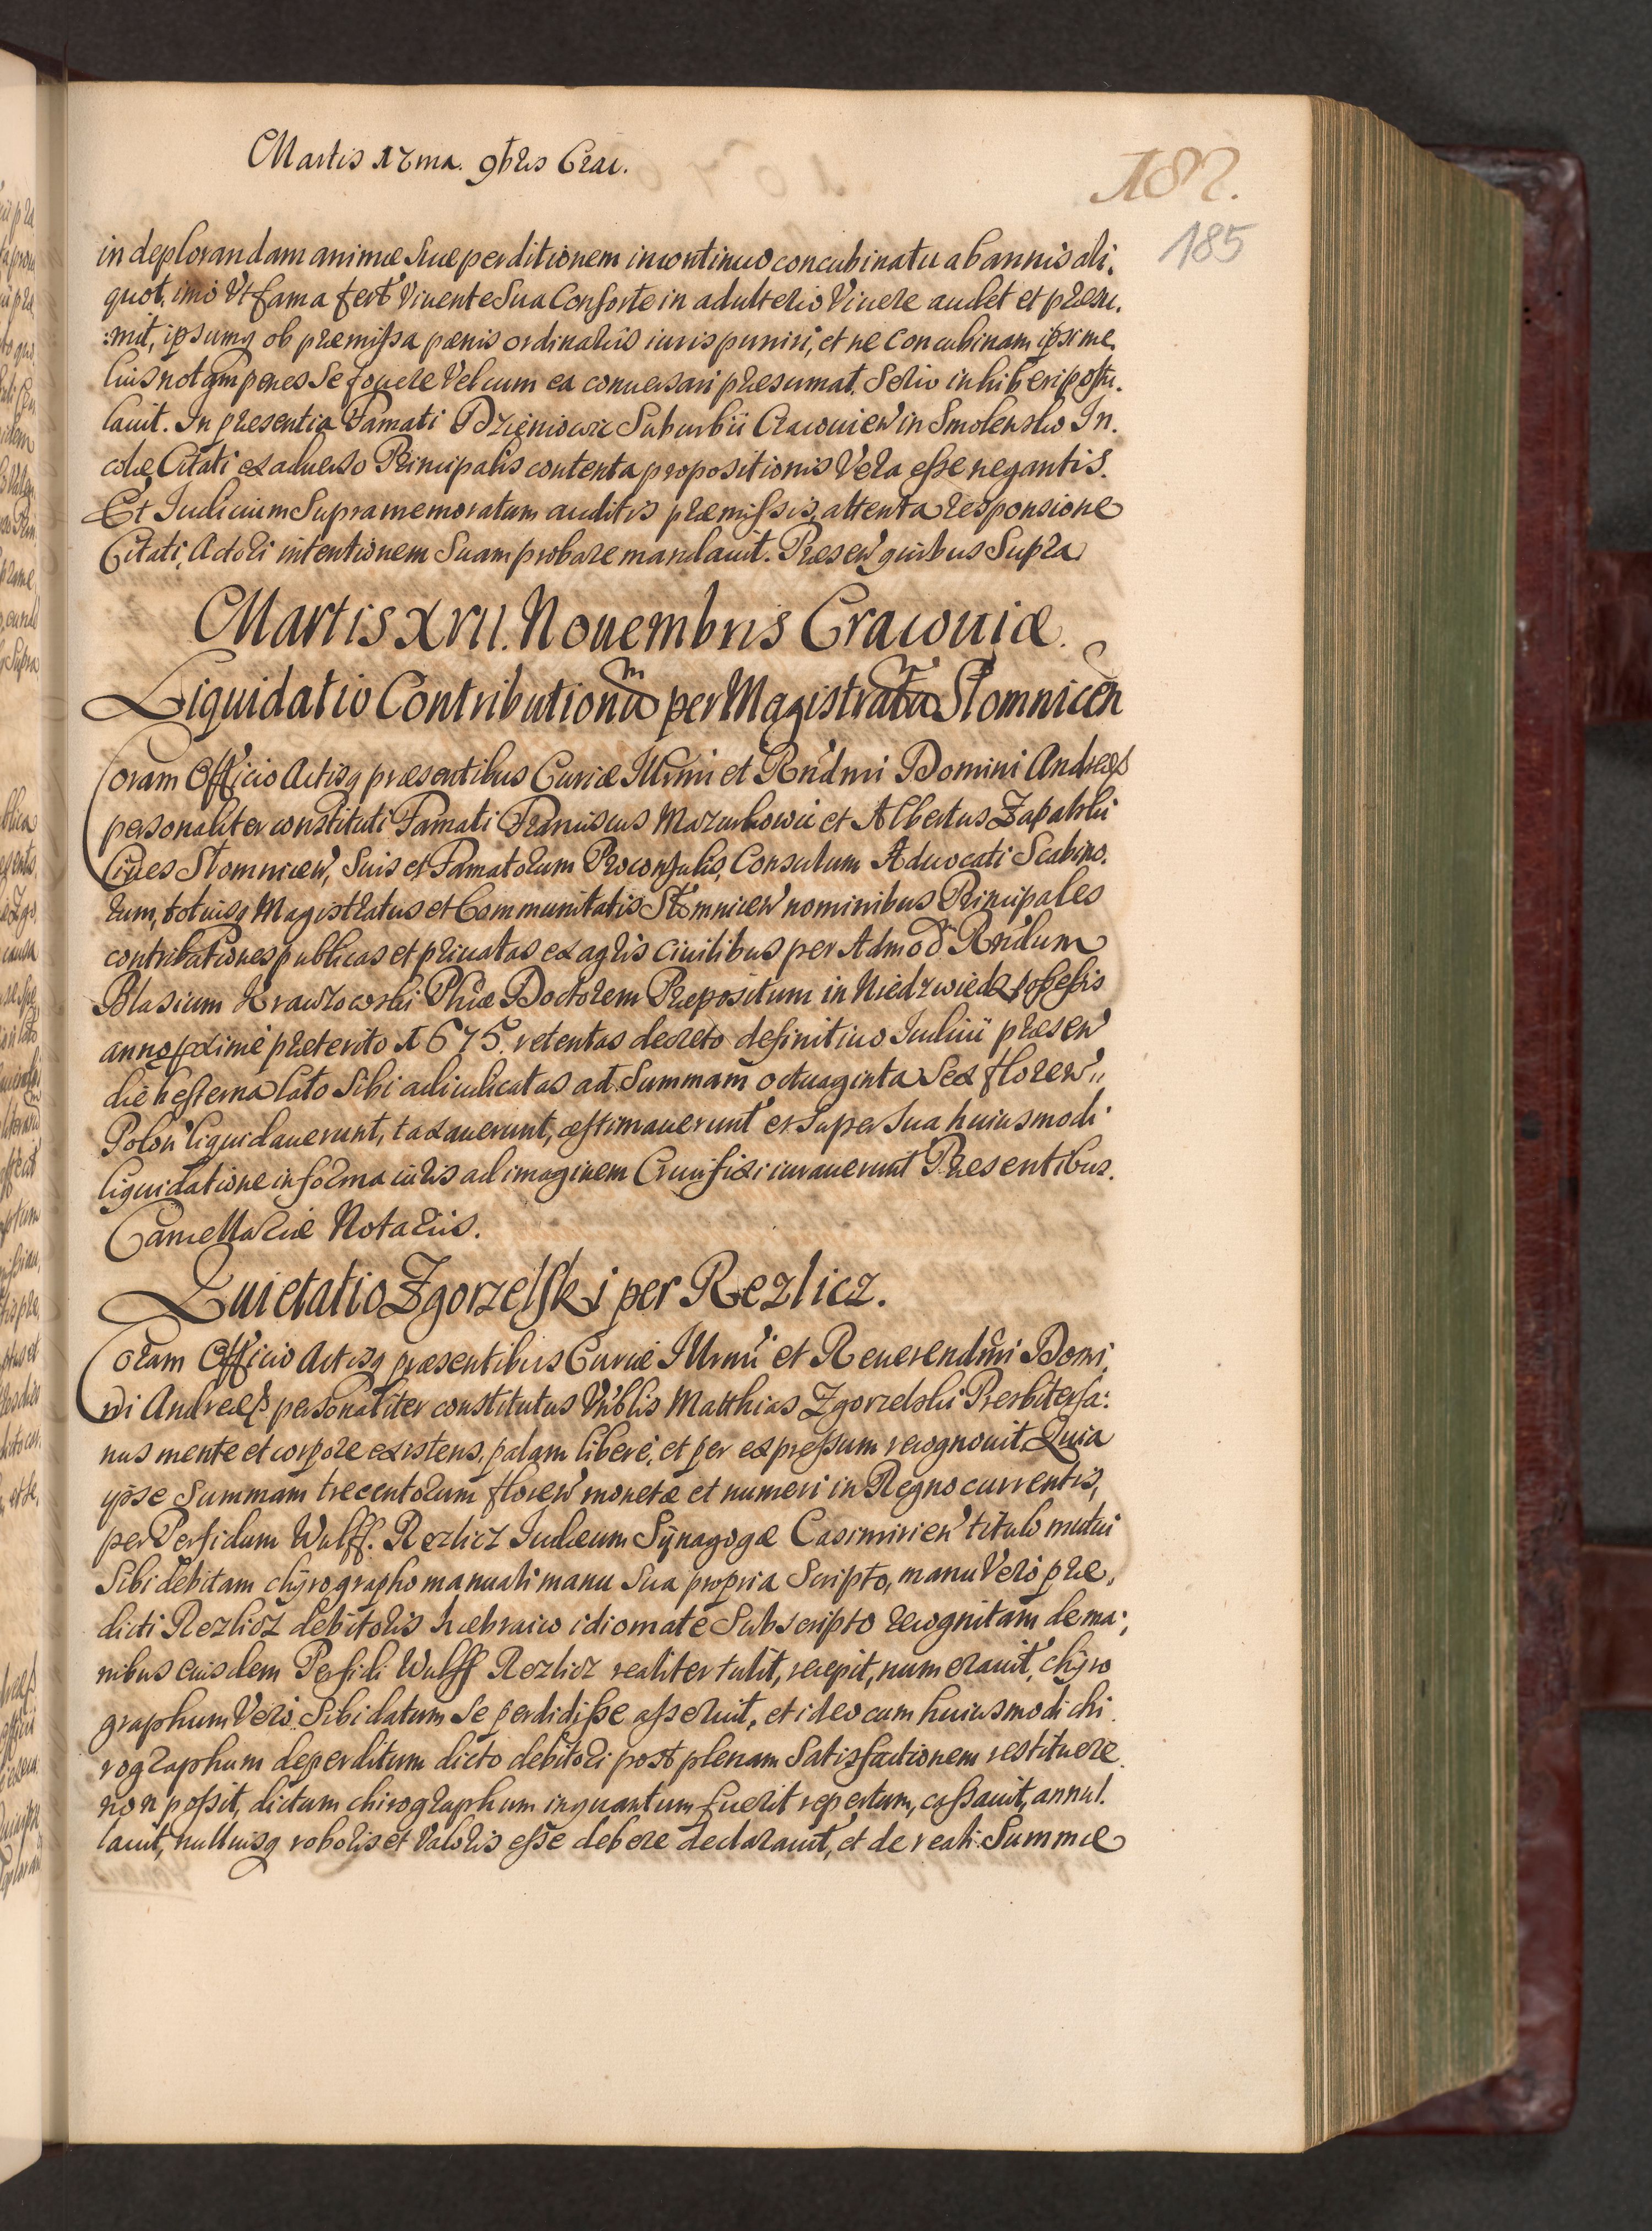 Martis 17ma. 9bris Crac.
182.
185
in deplorandam animæ suæ perditionem in continuo concubinatu ab annis ali,
quot, imò Vt fama fert Viuente Sua Consorte in adulterio Viuere audet et præsu,
:mit, ipsumq ob præmissa pænis ordinariis iuris puniri, et ne Concubinam ipsi me,
lius notam penes Se fouere Vel cum ea conuersari præsumat. Serio inhiberi postu,
lauit. In præsentia Famati Dzieniowic Suburbii Cracouien in Smolensko In,
colæ Citati ex aduerso Principalis contenta propositionis Vera esse negantis.
Et Iudicium Supramemoratum auditis præmissis, attenta responsione
Citati, Actori intentionem Suam probare mandauit. Præsen quibus Supra
Martis XVII. Nouembris Cracouiæ.
Liquidatio Contributionũ per Magistratũ Słomnicen
Coram Officio Actisq præsentibus Curiæ Illrmi et Rndmi Domini Andreæ
personaliter constituti Famati Franciscus Mazurkowic et Albertus Zapalski
Ciues Słomnicen, Suis et Famatorum Proconsulis, Consulum Aduocati Scabino,
rum, totiusq Magistratus et Communitatis Słomnicen nominibus Principales
contributiones publicas et priuatas ex agris Ciuilibus per Admod Rndum
Blasium Krawzowski Phiæ Doctorem Præpositum in Niedzwiedz possessis
anno proxime præterito 1675. retentas decreto definitiuo Iudicii præsen
die hesterna lato Sibi adiudicatas ad Summam octuaginta Sex floren,,
Polon liquidauerunt, taxauerunt, æstimauerunt et super sua huiusmodi
liquidatione in forma iuris ad imaginem Crucifixi iurauerunt Præsentibus.
Cancellariæ Notariis.
Quietatio Zgorzelski per Rezlicz.
Coram Officio Actisq præsentibus Curiæ Illrmi et Reuerendmi Domi,
ni Andreæ personaliter constitutus Vnblis Matthias Zgorzelski Presbiter sa:
nus mente et corpore existens, palam libere, et per expressum recognouit, Quia
ipse Summam trecentorum floren monetæ et numeri in Regno currentis,
per Perfidum Wulff. Rezlicz Iudæum Synagogæ Casimirien titulo mutui
Sibi debitam chyrographo manuali manu Sua propria Scripto, manu Verò præ,
dicti Rezlicz debitoris hæbraico idiomate Subscripto recognitam de ma,
nibus eiusdem Perfidi Wulff Rezlicz realiter tulit, recepit, numerauit, chyro
graphum Verò Sibi datum Se perdidisse asseruit, et ideo cum huiusmodi chi
rographum deperditum dicto debitori post plenam Satisfactionem restituere
non possit, dictum chirographum inquantum fuerit repertum, cassauit, annul.
lauit, nulliusq roboris et Valoris esse debere declarauit, et de reali Summæ